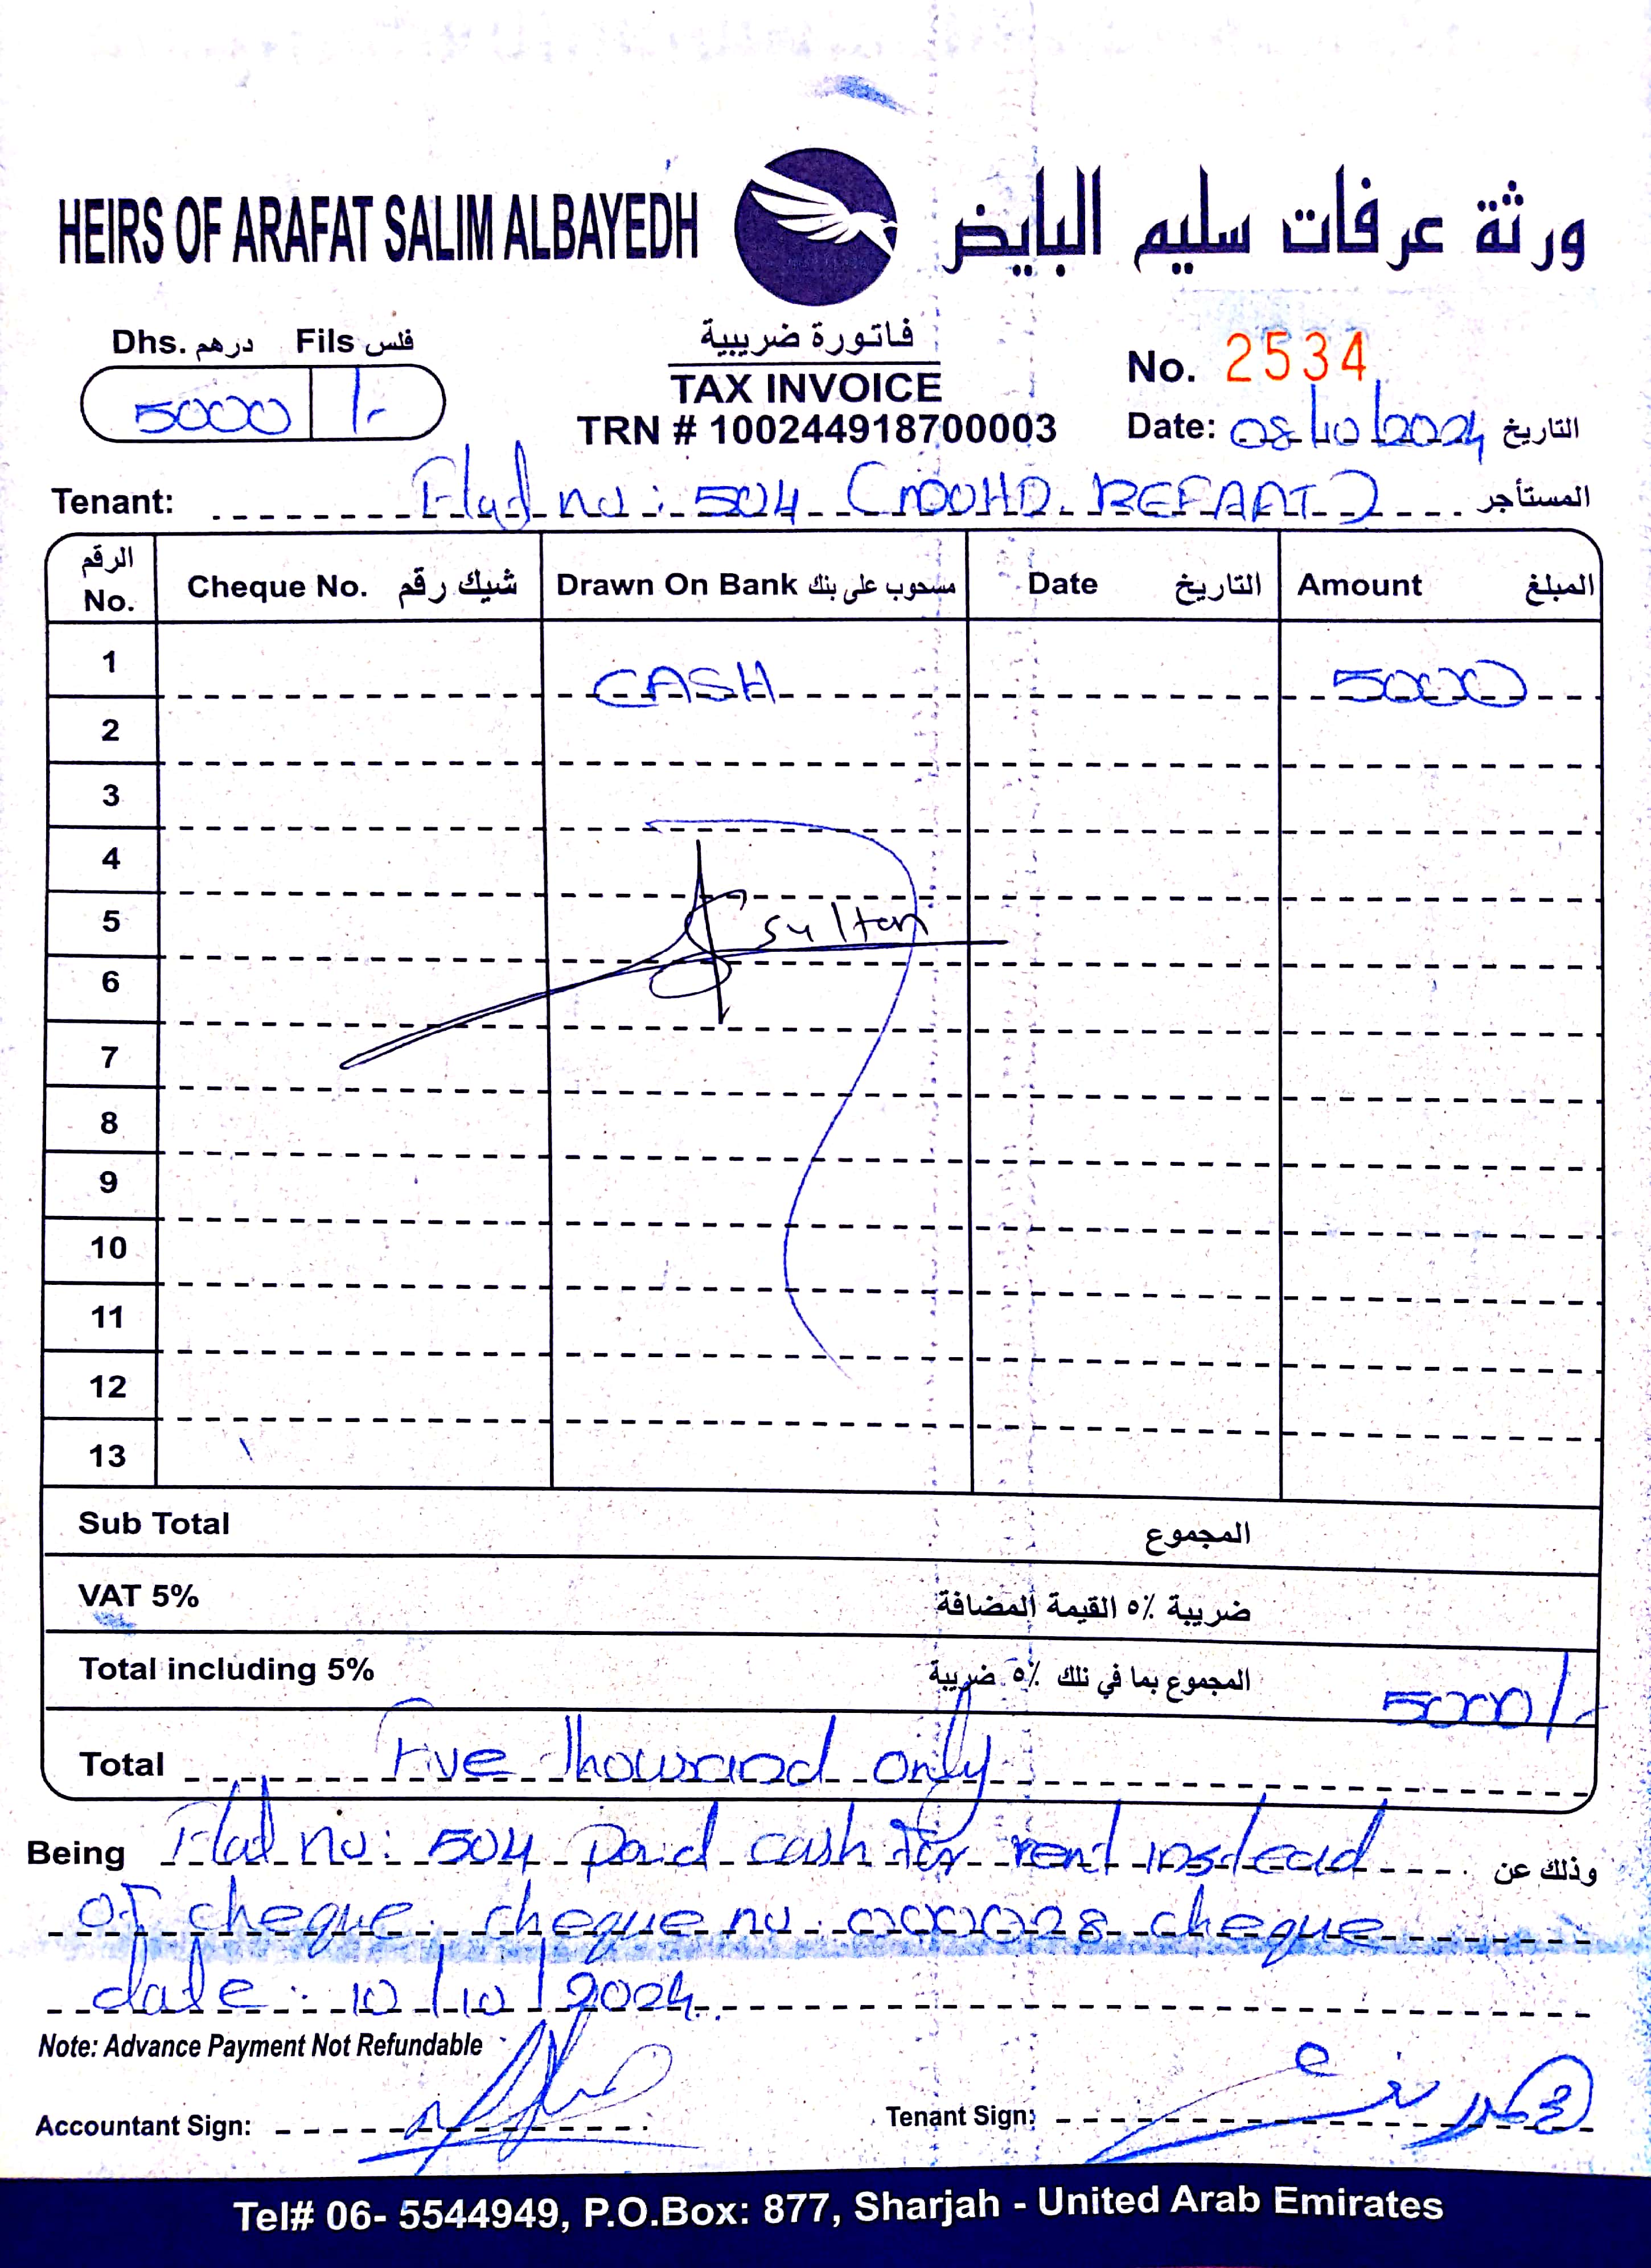 HEIRS OF ARAFAT SALIM ALBAYEDH ورثة عرفات سليم البايض
Dhs. درهم Fils فلس
5000 /-
فاتورة ضريبية
TAX INVOICE
TRN # 100244918700003
No. 2534
Date: 08/10/2024 التاريخ
Tenant: Flat no: 504 (MOHD. REFAAT) المستأجر
الرقم No. Cheque No. شيك رقم Drawn On Bank مسحوب على بنك Date التاريخ Amount المبلغ
1 CASH 5000
2
3
4
5 sultan
6
7
8
9
10
11
12
13
Sub Total المجموع
VAT 5% ضريبة ٥٪ القيمة المضافة
Total including 5% المجموع بما في ذلك ٥٪ ضريبة 5000/-
Total Five Thousand Only
Being Flat no: 504 Paid cash for rent instead وذلك عن
of cheque. cheque no: 000028 cheque
date: 10/10/2024.
Note: Advance Payment Not Refundable
Accountant Sign: Tenant Sign:
Tel# 06- 5544949, P.O.Box: 877, Sharjah - United Arab Emirates